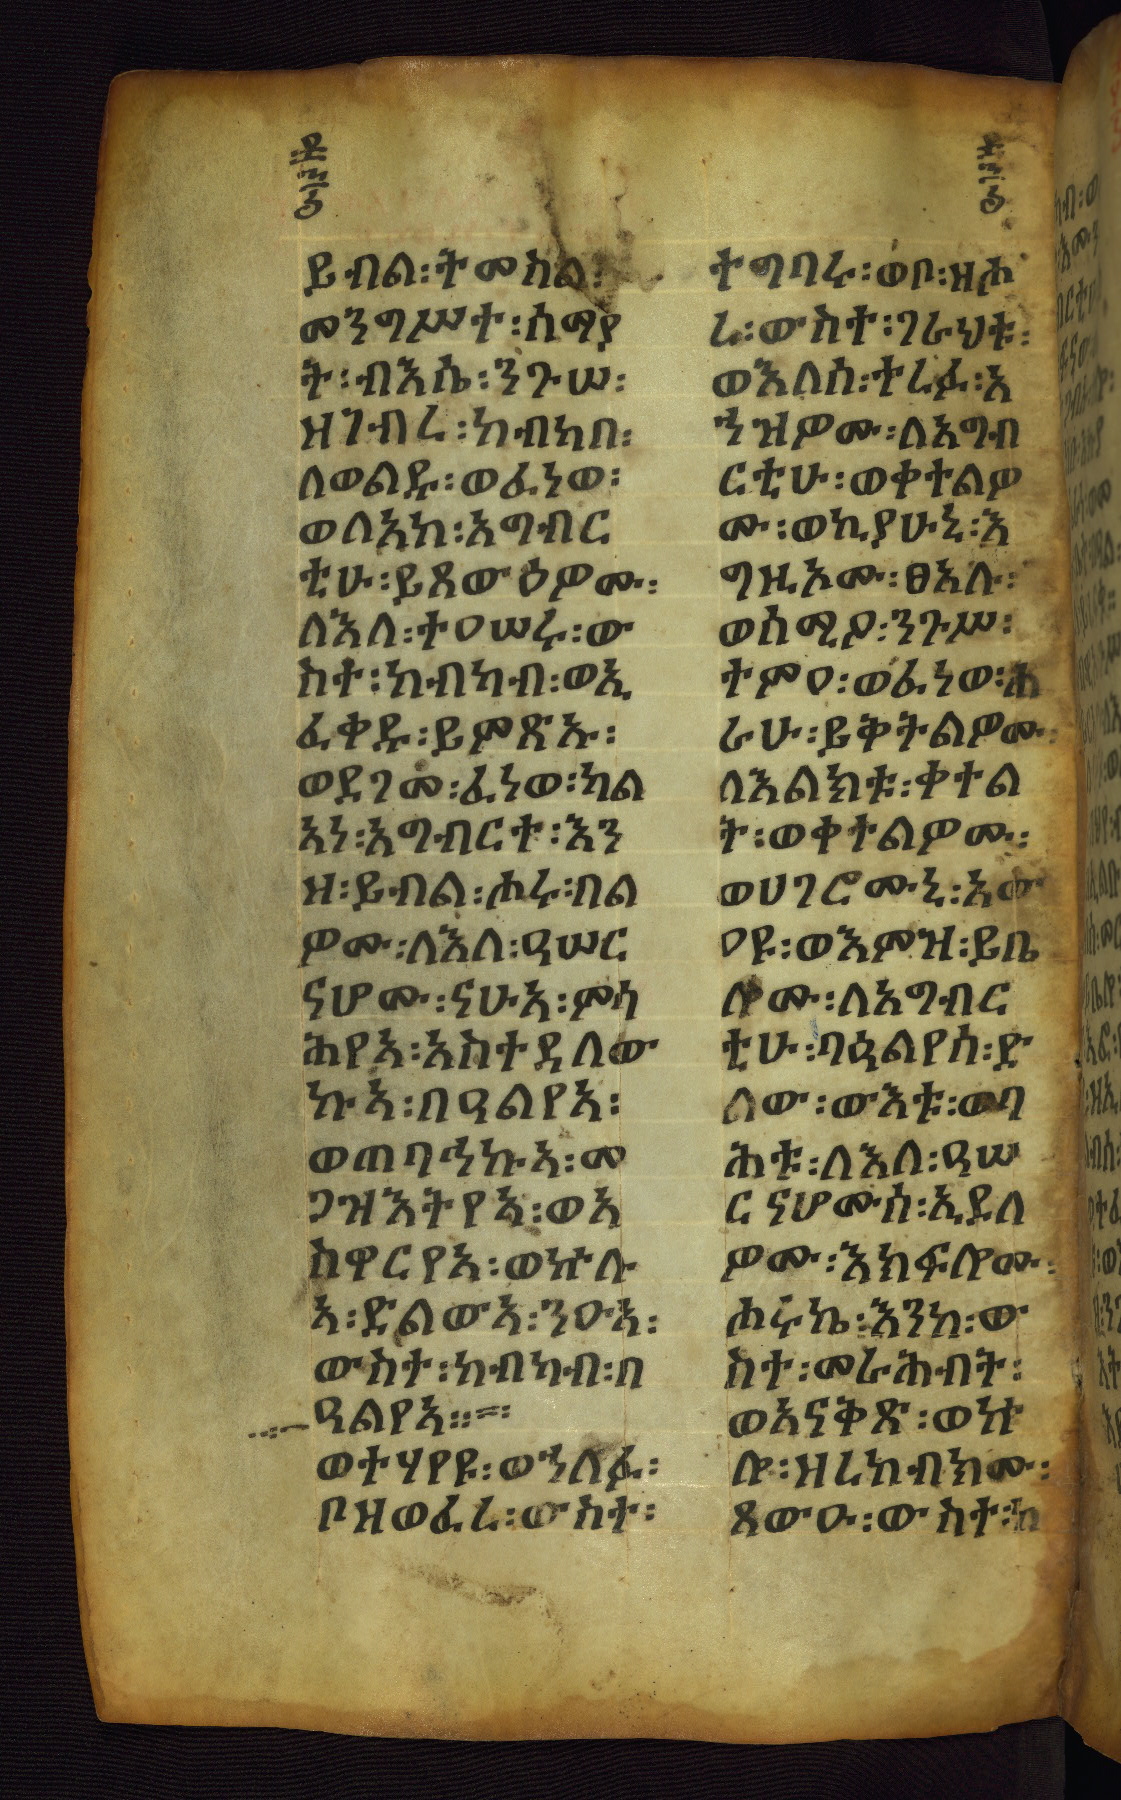 ይብል፡ትመስል፡
መንግሥተ፡ሰማያ
ት፡ብእሴ፡ንጉሠ፡
ዘገብረ፡ከብካበ፡
ለወልዱ፡ወፈነወ፡
ወለአከ፡አግብር
ቲሁ፡ይጸውዕዎሙ፡
ለእለ፡ተዐሠሩ፡ው
ስተ፡ከብካብ፡ወኢ
ፈቀዱ፡ይምጽኡ፡
ወደገመ፡ፈነወ፡ካል
አነ፡አግብርተ፡እን
ዘ፡ይብል፡ሑሩ፡በል
ዎሙ፡ለእለ፡ዓሠር
ናሆሙ፡ናሁአ፡ምሳ
ሕየአ፡አስተደለው
ኩአ፡በዓልየአ፡
ወጠባኅኩአ፡መ
ጋዝእትየአ፡ወአ
ስዋርየአ፡ወኵሉ
አ፡ድልውአ፡ንዑአ፡
ውስተ፡ከብካብ፡በ
ዓልየአ፡፡
ወተሃየዩ፡ወኀለፉ፡
ቦዘወፈረ፡ውስተ፡
ተግባሩ፡ወቦ፡ዘሑ
ረ፡ውስተ፡ገራህቱ፡
ወእለሰ፡ተረፉ፡አ
ኀዝዎሙ፡ለአግብ
ርቲሁ፡ወቀተልዎ
ሙ፡ወኪያሁኒ፡እ
ግዚኦሙ፡ፀአሉ፡
ወሰሚዖ፡ንጉሥ፡
ተምዐ፡ወፈነወ፡ሐ
ራሁ፡ይቅትልዎሙ፡
ለእልክቱ፡ቀተል
ት፡ወቀተልዎሙ፡
ወሀገሮሙኒ፡አው
ዐዩ፡ወእምዝ፡ይቤ
ሎሙ፡ለአግብር
ቲሁ፡ባዓልየሰ፡ድ
ልው፡ውእቱ፡ወባ
ሕቱ፡ለእለ፡ዓሠ
ርናሆሙሰ፡ኢደለ
ዎሙ፡እክፍሎሙ፡
ሑሩኬ፡እንከ፡ው
ስተ፡መራሕብት፡
ወአናቅጽ፡ወኵ
ሎ፡ዘረከብክሙ፡
ጸውዑ፡ውስተ፡ከ